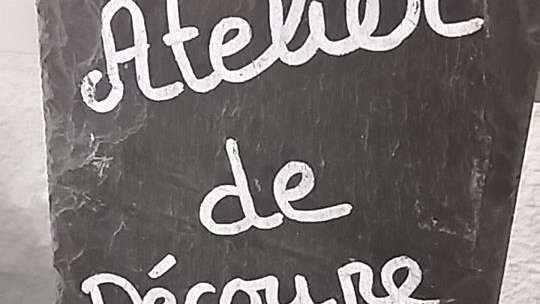 Atelier
de
Découpe